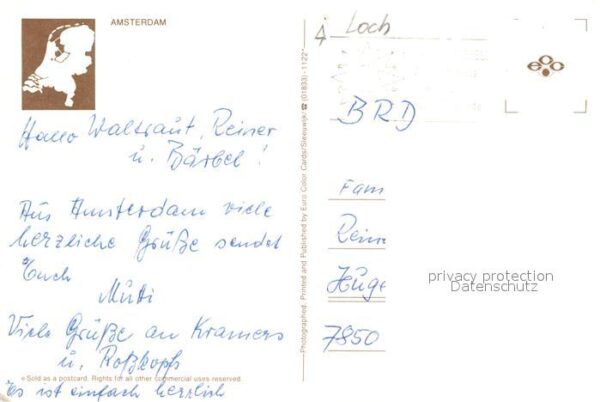 AMSTERDAM
Hallo Waltraut, Reiner
u. Bärbel!
Aus Amsterdam viele
herzliche Grüße sendet
Euch
Mutti
Viele Grüße an Kramers
u. Roßkopfs
Es ist einfach herrlich
Sold as a postcard. Rights for all other commercial uses reserved.
Photographed, Printed and Published by Euro Color Cards/Sleeuwijk ☎ (01833) - 1122*
Loch
BRD
Fam
Reine
Hüge
7850
privacy protection
Datenschutz